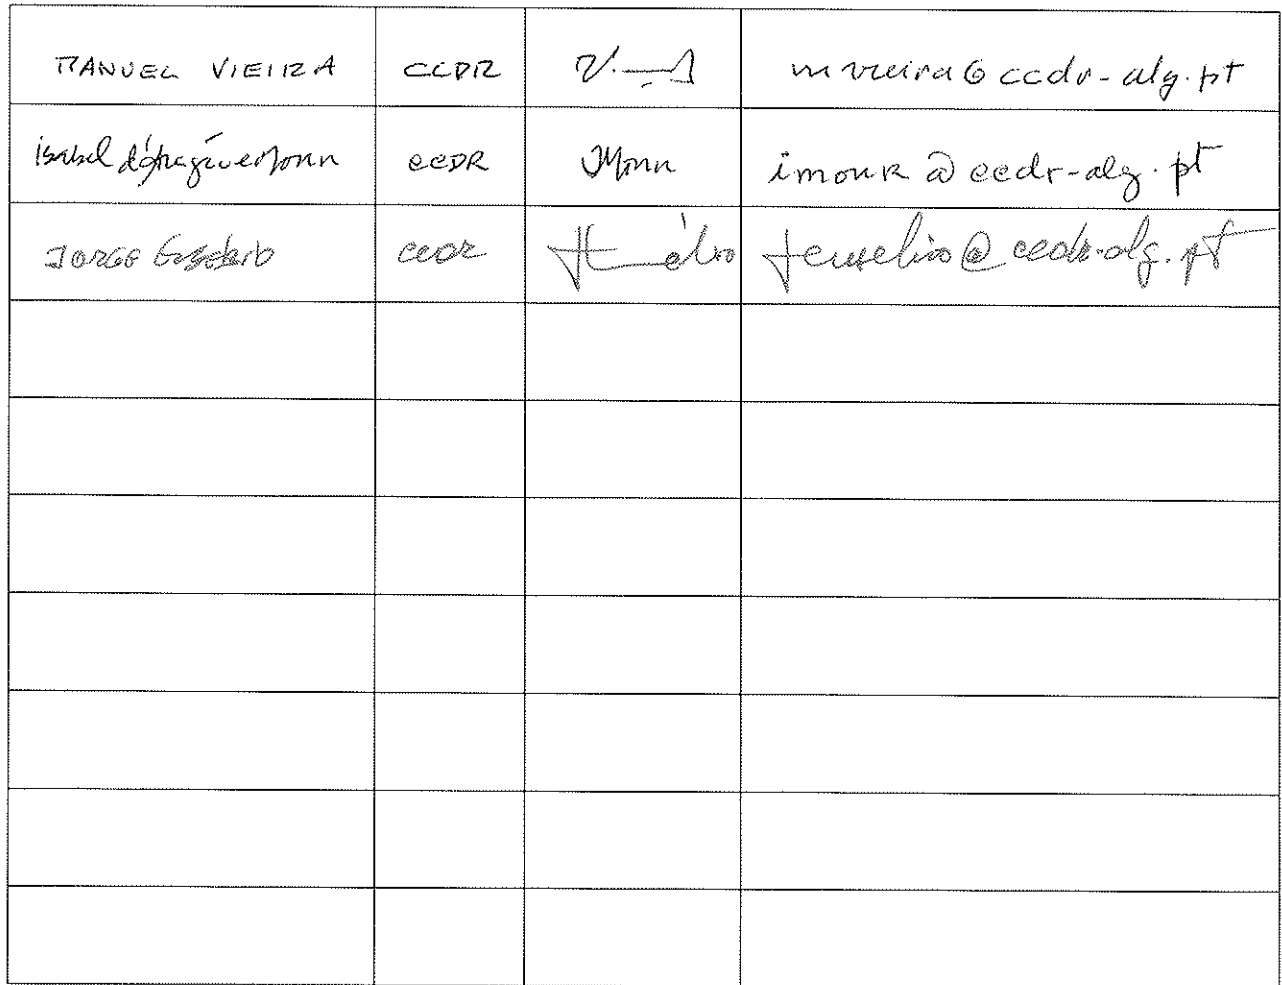 MANUEL VIEIRA CCDR mvieira@ccdr-alg.pt
Isabel Moura CCDR imoura@ccdr-alg.pt
JORGE Eusébio CCDR jeusebio@ccdr-alg.pt